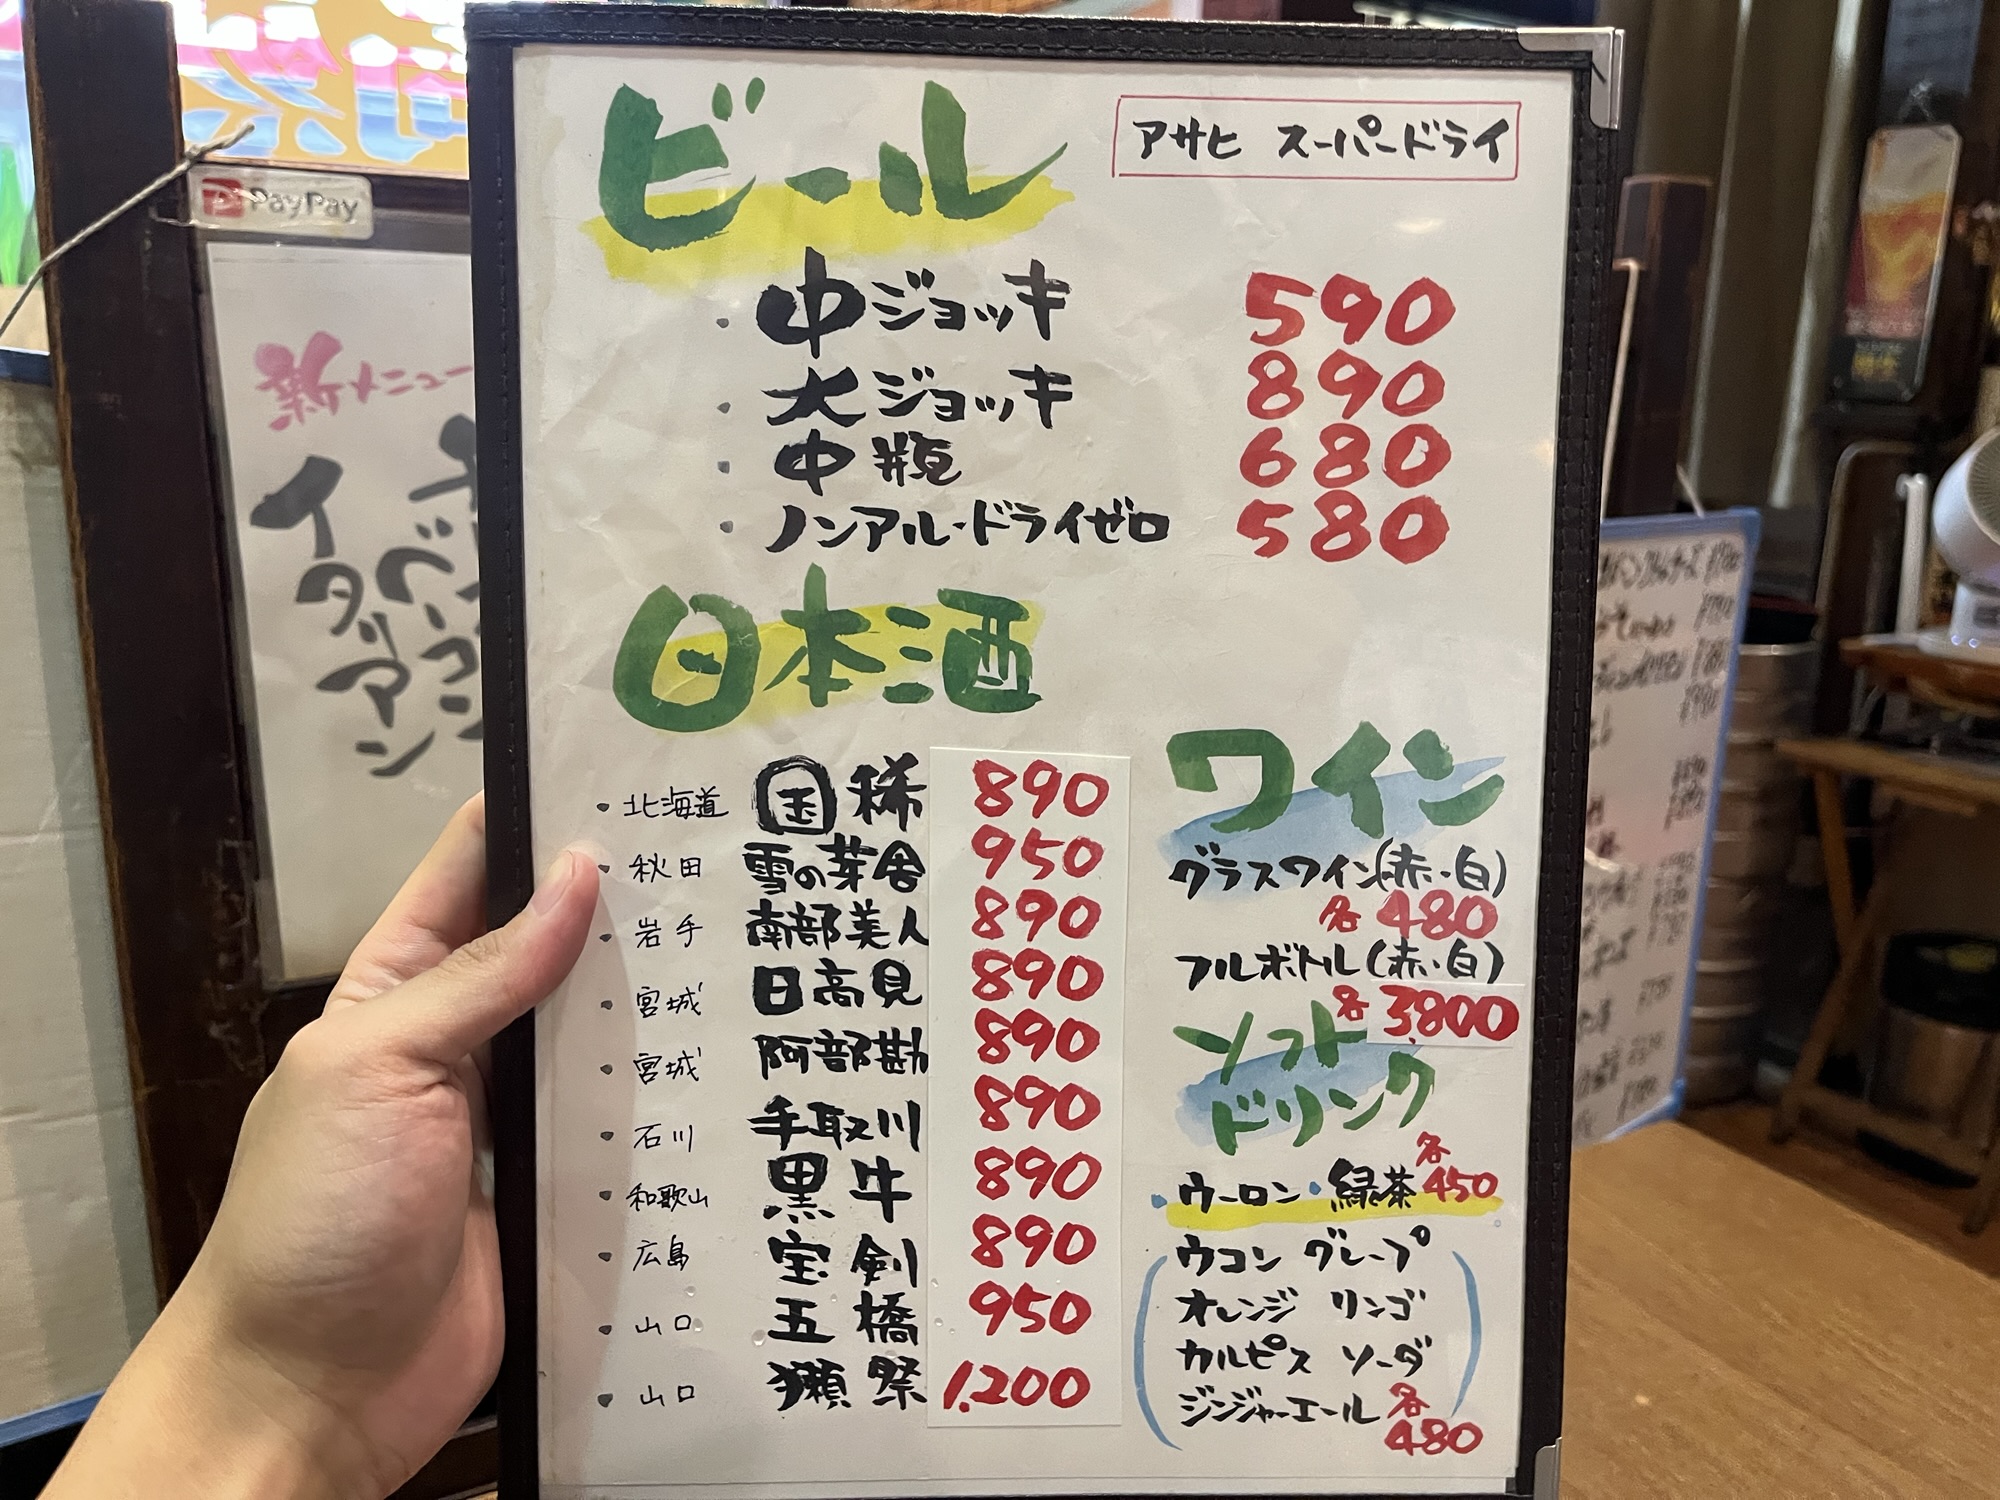 PayPay
新メニュー
イタリアン
ビール
アサヒ スーパードライ
・中ジョッキ 590
・大ジョッキ 890
・中瓶 680
・ノンアル・ドライゼロ 580
日本酒
・北海道 国稀 890
・秋田 雪の芽舎 950
・岩手 南部美人 890
・宮城 日高見 890
・宮城 阿部勘 890
・石川 手取川 890
・和歌山 黒牛 890
・広島 宝剣 890
・山口 五橋 950
・山口 獺祭 1,200
ワイン
グラスワイン(赤・白)
各 480
フルボトル(赤・白)
各 3,800
ソフト
ドリンク
・ウーロン・緑茶 各450
ウコン グレープ
オレンジ リンゴ
カルピス ソーダ
ジンジャーエール 各
480